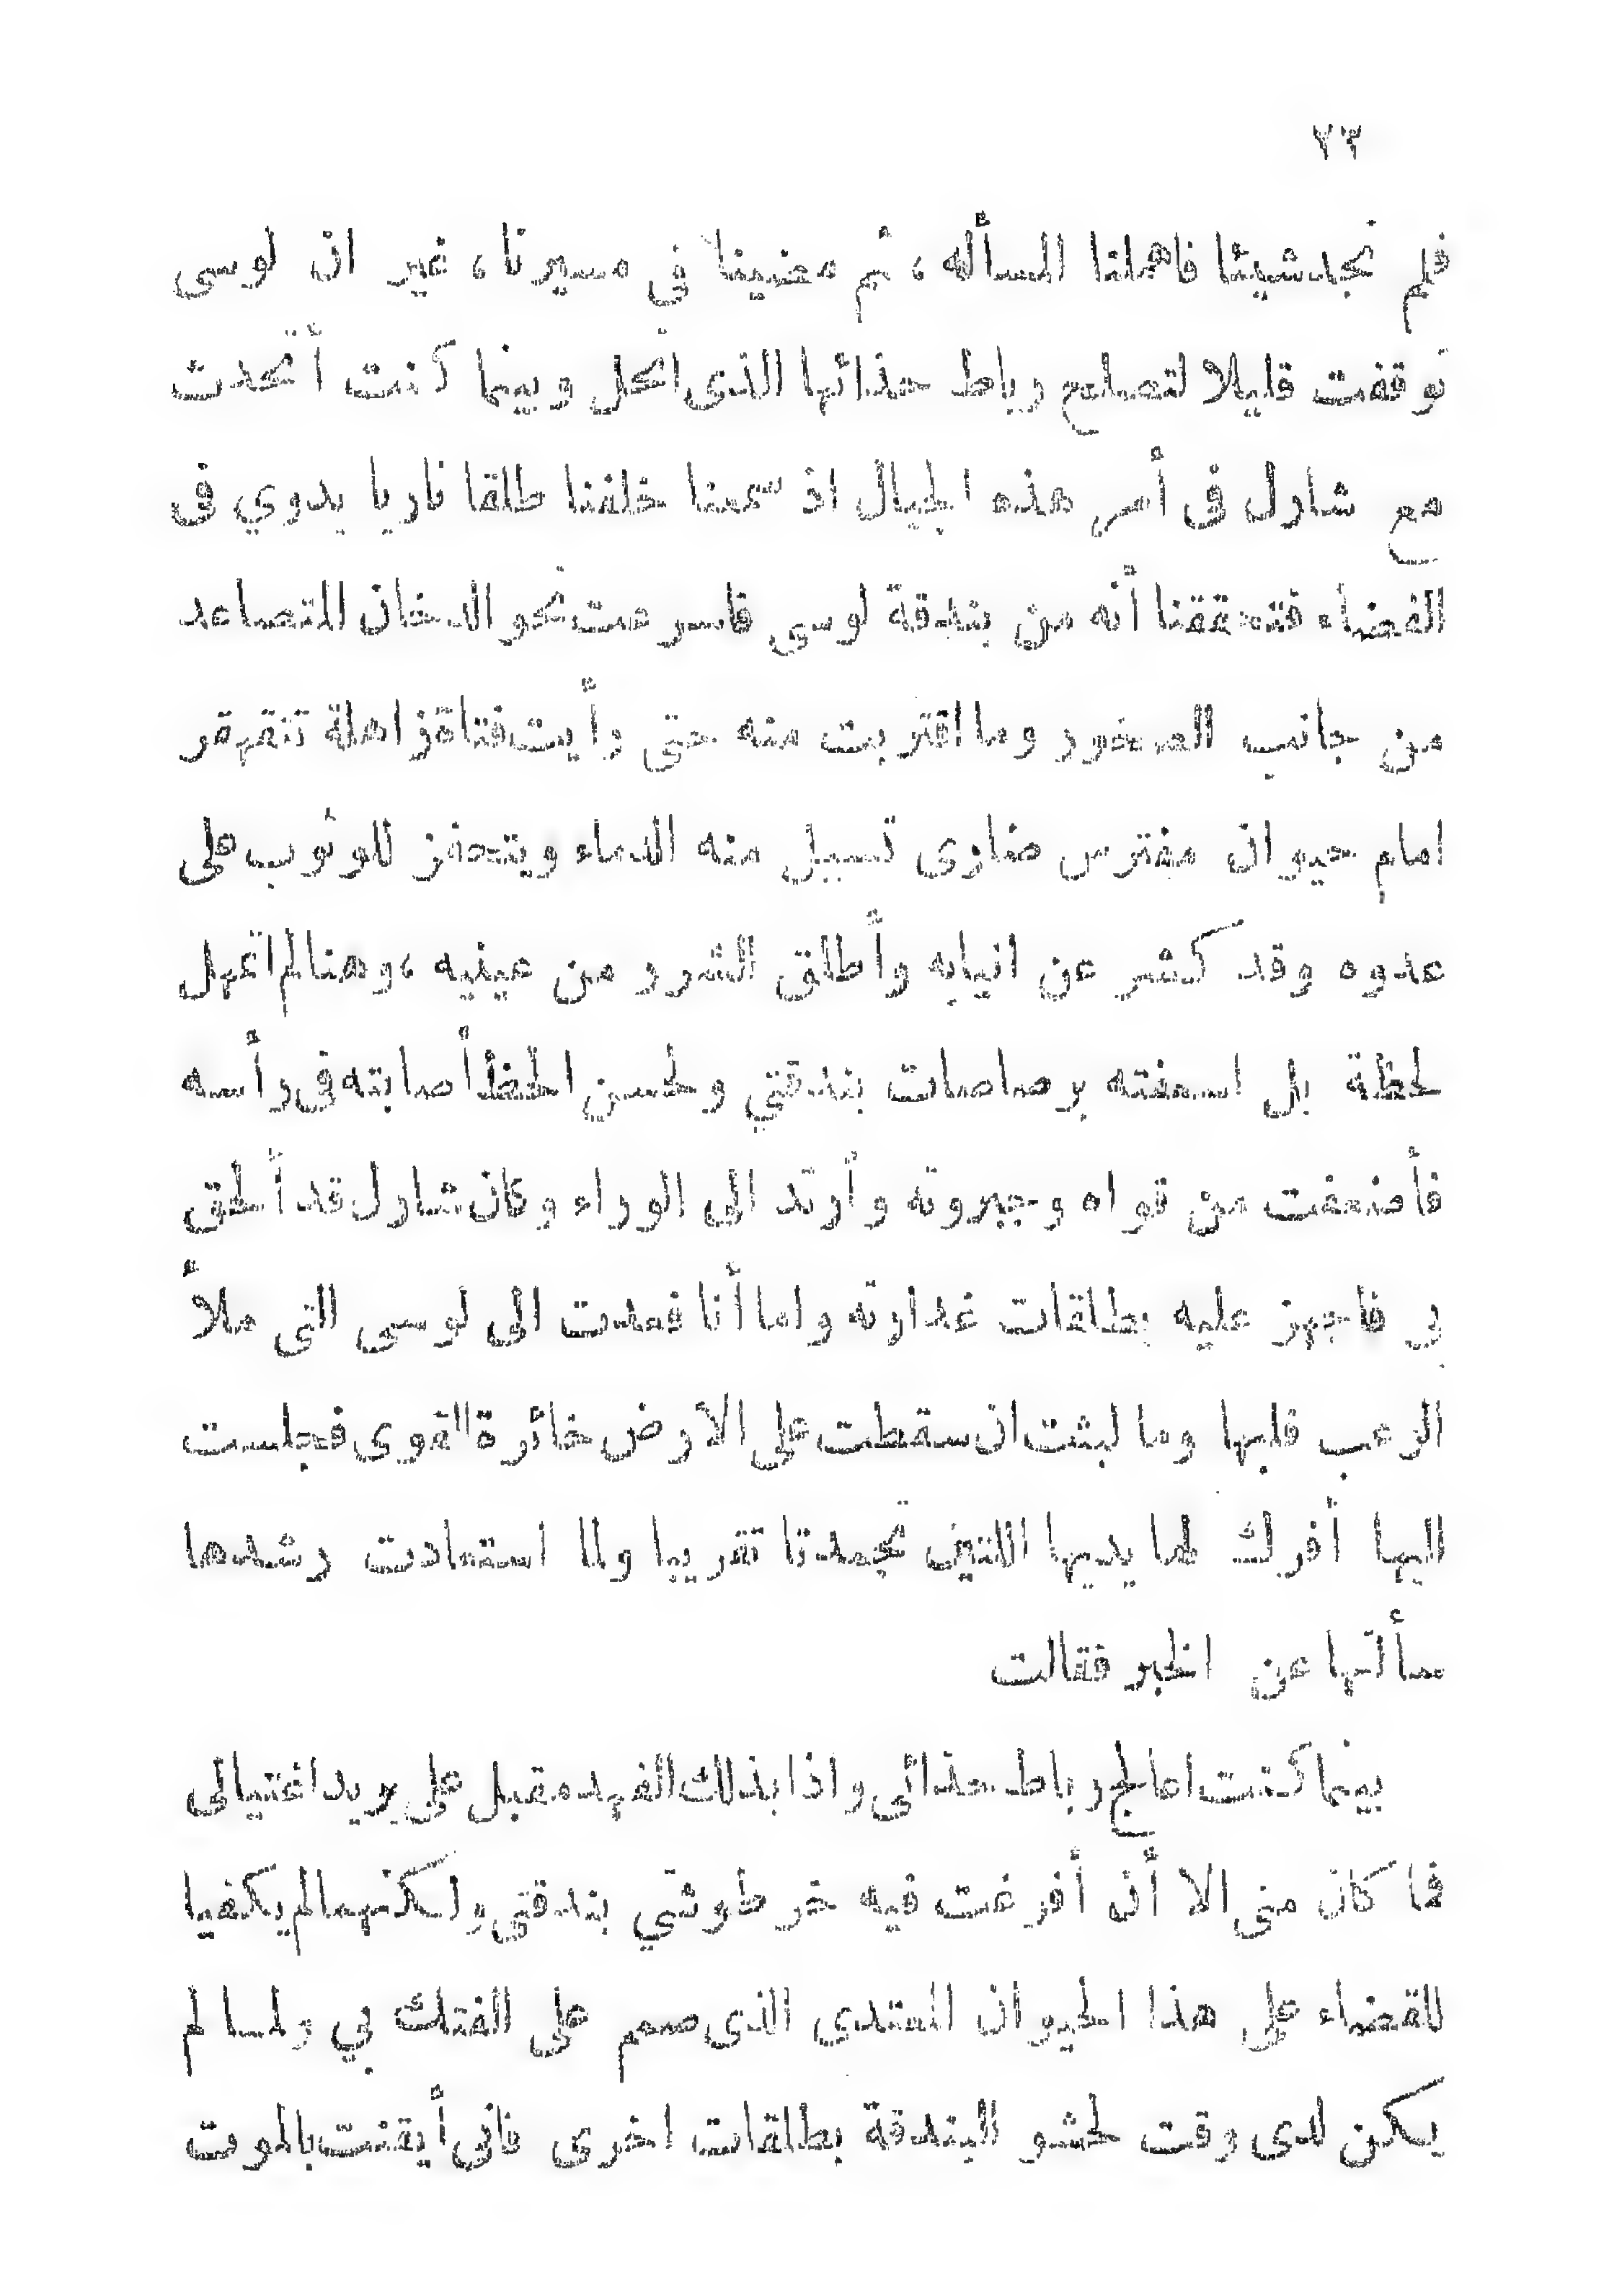 ٢٣
فلم نجد شيئا فاهملنا المسأله ، ثم مضينا في مسيرنا ، غير ان لوسى
توقفت قليلا لتصلح رباط حذائها الذى انحل وبينما كنت أتحدث
مع شارل فى أمر هذه الجبال اذ سمعنا خلفنا طلقا ناريا يدوي فى
الفضاء فتحققنا أنه من بندقة لوسى فاسرعت نحو الدخان المتصاعد
من جانب الصخور وما اقتربت منه حتى رأيت فتاة زاهلة تتقهقر
امام حيوان مفترس ضارى تسيل منه الدماء ويتحفز للوثوب على
عدوه وقد كشر عن انيابه وأطلق الشرر من عينيه ، وهنا لم اتمهل
لحظة بل اسعفته برصاصات بندقتي ولحسن الحظ أصابته فى رأسه
فأضعفت من قواه وجبروته وأرتد الى الوراء وكان شارل قد ألحق
بى فاجهز عليه بطلقات غدارته واما أنا فعدت الى لوسى التى ملأ
الرعب قلبها وما لبثت ان سقطت على الارض خائرة القوى فجلست
اليها أفرك لها يديها اللتين تجمدتا تقريبا ولما استعادت رشدها
سألتها عن الخبر فقالت
بينما كنت اعالج رباط حذائى واذا بذلك الفهد مقبل على يريد اغتيالى
فما كان منى الا أن أفرغت فيه خرطوشتي بندقتى ولكنهما لم يكفيا
للقضاء على هذا الحيوان المعتدى الذى صمم على الفتك بي ولما لم
يكن لدى وقت لحشو البندقة بطلقات اخرى فانى أيقنت بالموت